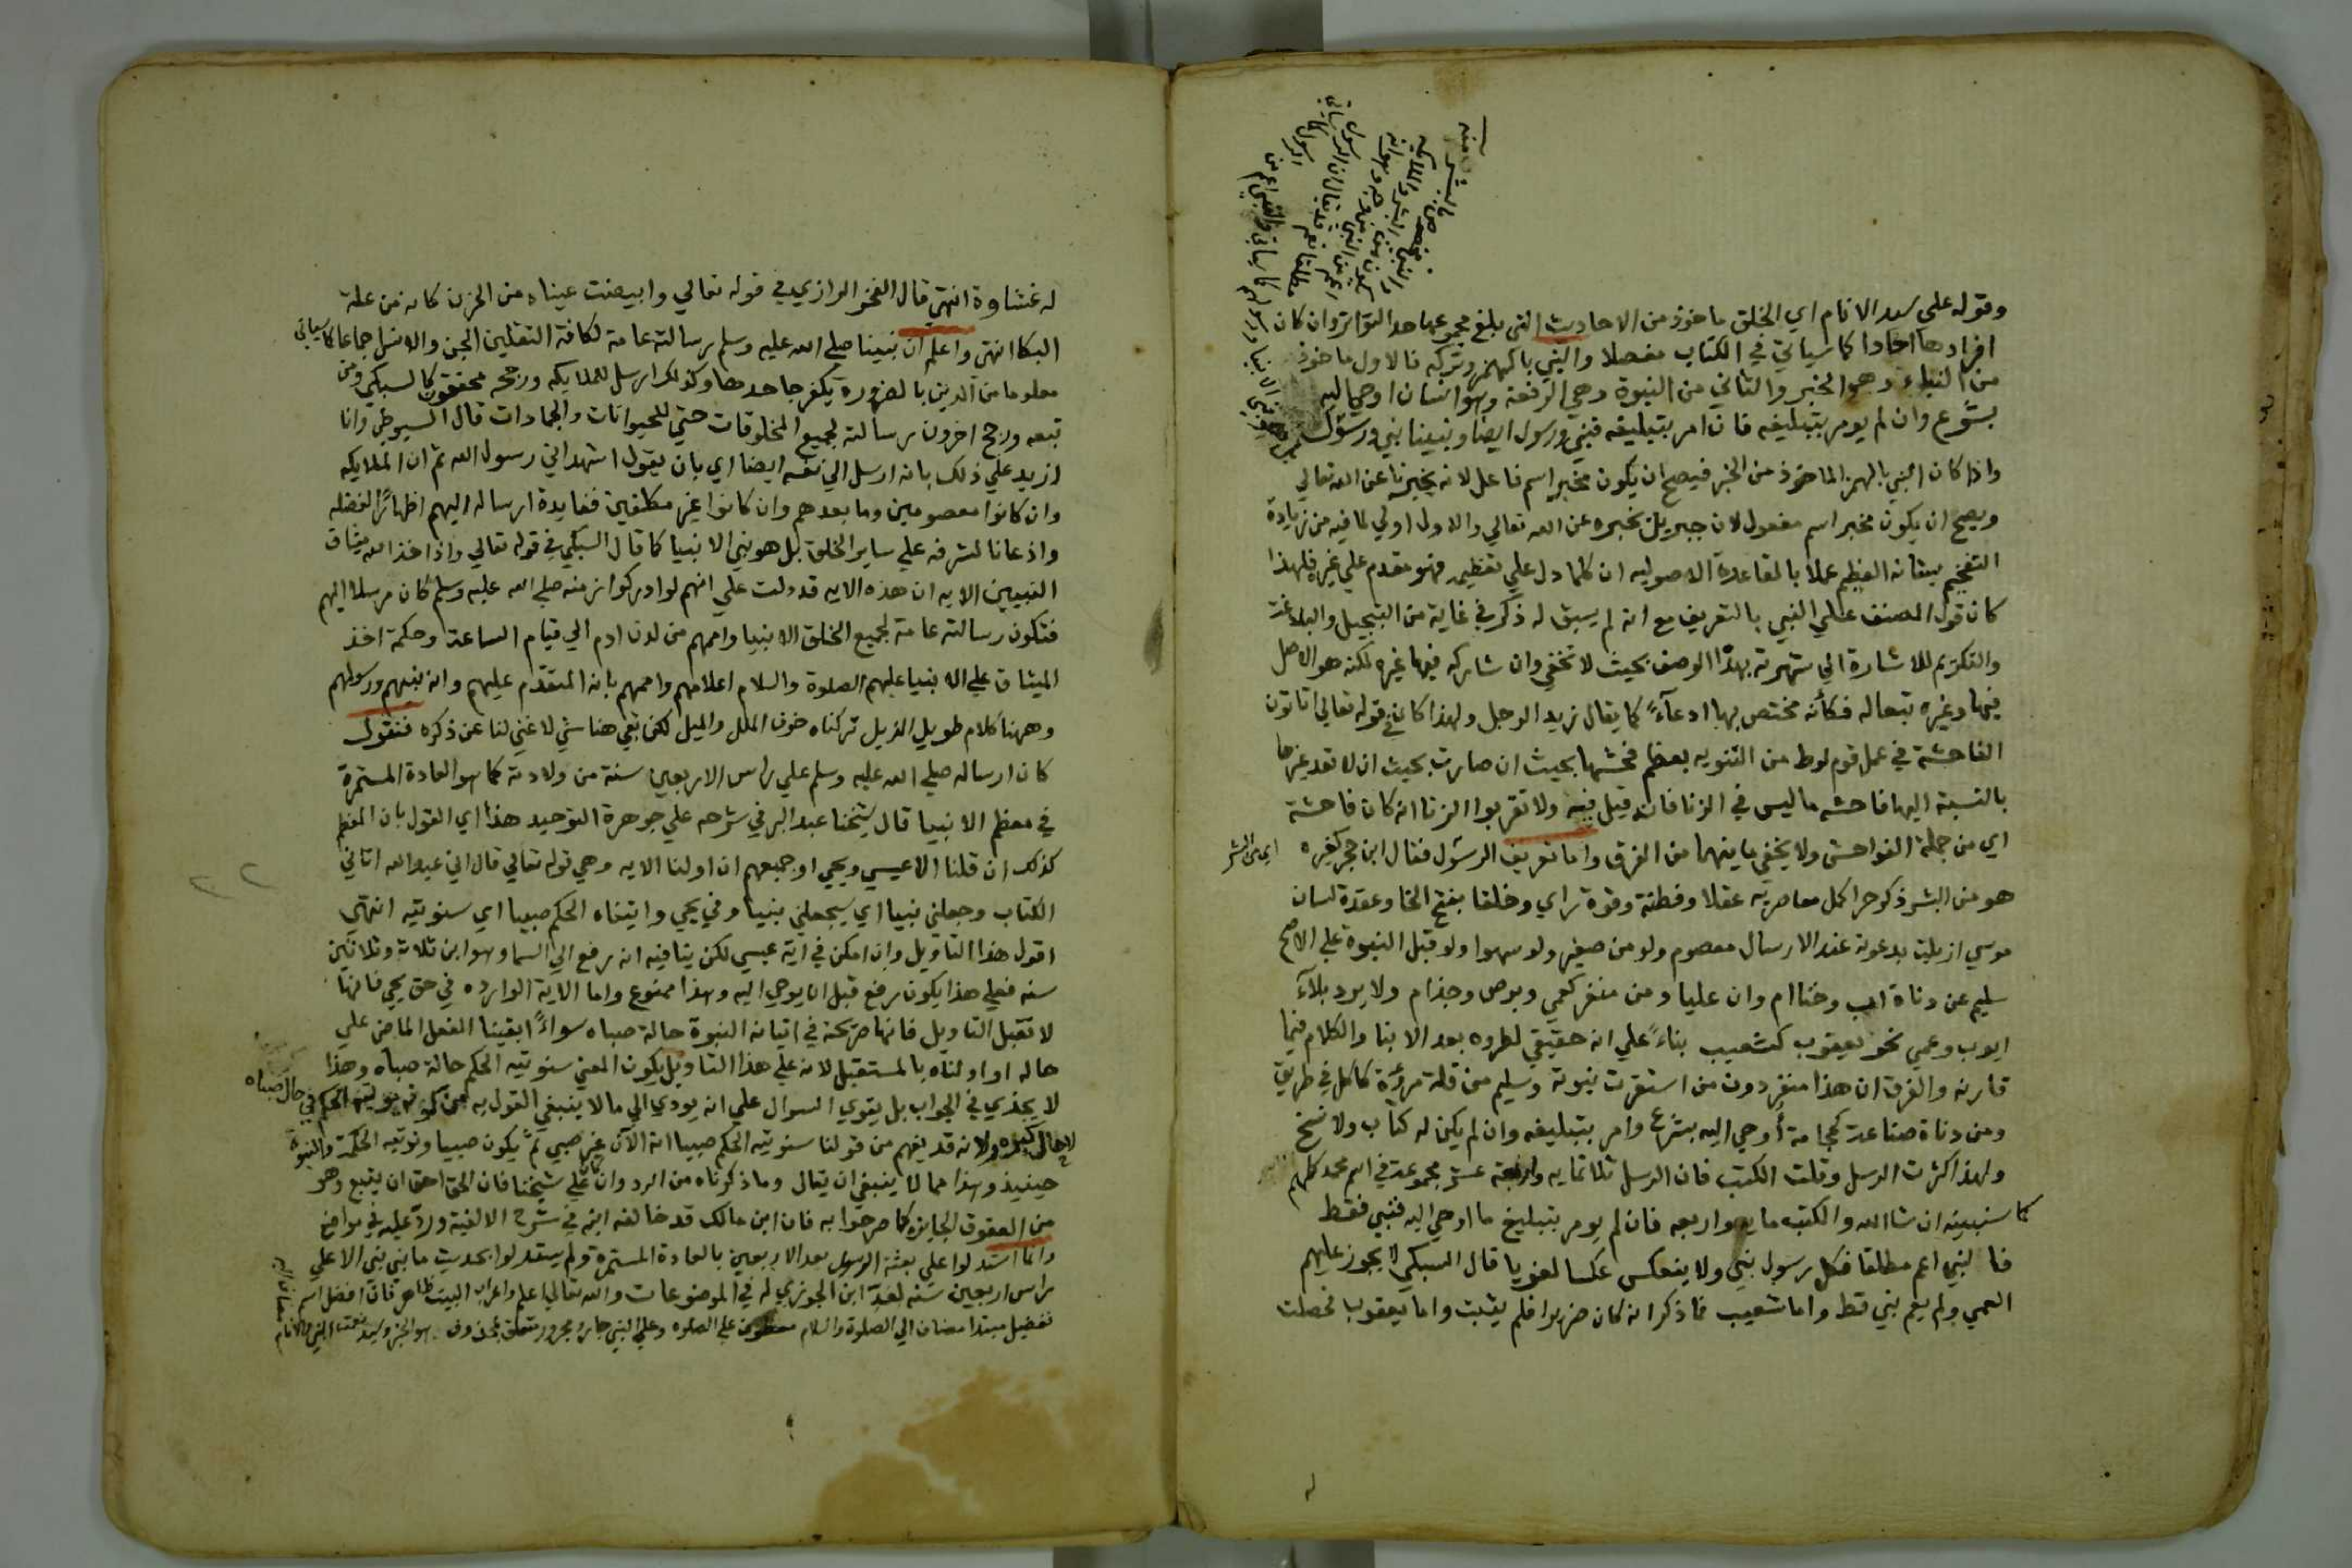 وقوله علي سيد الانام اي الخلق ماخوذ من الاحاديث التي بلغ مجموعها حد التواتر وان كان
افرادها احادا كما سياتي في الكتاب مفصلا والنبي بالهمز وتركه فالاول ماخوذ
من النباء وهو الخبر والثاني من النبوة وهي الرفعة وهو انسان اوحي اليه
بشرع وان لم يومر بتبليغه فان امر بتبليغه فنبي ورسول ايضا ونبينا نبي ورسول
واذا كان النبي بالهمز الماخوذ من الخبر فيصح ان يكون مخبر اسم فاعل لانه يخبرنا عن الله تعالي
ويصح ان يكون مخبر اسم مفعول لان جبريل يخبره عن الله تعالي والاول اولي لما فيه من زيادة
التفخيم بشانه العظيم عملا بالقاعدة الاصوليه ان كلما دل علي تعظيم فهو مقدم علي غيره فلهذا
كان قول المصنف علي النبي بالتعريف مع انه لم يسبق له ذكر في غاية من التبجيل والبلاغة
والتكريم للاشارة الي شهرته بهذا الوصف بحيث لا تخفي وان شاركه فيها غيره لكنه هو الاصل
فيها وغيره تبعا له فكأنه مختص بها ادعآءً كما يقال زيد الرجل ولهذا كان في قوله تعالي اتاتون
الفاحشة في عمل قوم لوط من التنويه بعظم فحشها بحيث ان صارت بحيث ان لا تعد غيرها
بالنسبة اليها فاحشه ما ليس في الزنا فان قيل فيه ولا تقربوا الزنا انه كان فاحشة
اي من جملة الفواحش ولا يخفي ما بينهما من الفرق واما تعريف الرسول فقال ابن حجر كغيره
هو من البشر ذكر حر اكمل معاصريه عقلا وفطنة وقوة راي وخلقا بفتح الخا وعقدة لسان
موسي ازيلت بدعوته عند الارسال معصوم ولو من صغير ولو سهوا ولو قبل النبوة علي الاصح
سليم عن دناة اب وخنا ام وان عليا ومن منفر كعمي وبرص وجذام ولا يرد بلآء
ايوب وعمي نحو يعقوب كشعيب بناءً علي انه حقيقي لطروه بعد الانبا والكلام فيما
قارنه والفرق ان هذا منفر دون من استقرت نبوته وسليم من قلة مرؤة كاكل في طريق
ومن دناة صناعة كحجامة أوحي اليه بشرع وامر بتبليغه وان لم يكن له كتاب ولا نسخ
ولهذا كثرت الرسل وقلت الكتب فان الرسل ثلاثمايه واربعة عشر مجموعة في اسم محمد كلهم
كما سنبينه ان شا الله والكتب مايه واربعه فان لم يومر بتبليغ ما اوحي اليه فنبي فقط
فالنبي اعم مطلقا فكل رسول نبي ولا ينعكس عكسا لغويا قال السبكي لا يجوز عليهم
العمي ولم يعم نبي قط واما شعيب فما ذكر انه كان ضريرا فلم يثبت واما يعقوب فحصلت
له غشاوة انتهي قال الفخر الرازي في قوله تعالي وابيضت عيناه من الحزن كانه من غلبة
البكا انتهي واعلم ان نبينا صلي الله عليه وسلم رسالته عامة لكافة الثقلين الجن والانس اجماعا كما سياتي
معلوما من الدين بالضروره يكفر جاحدها وكذلك ارسل للملايكه ورجحه محققون كالسبكي ومن
تبعه ورجح اخرون رسالته لجميع المخلوقات حتي للحيوانات والجمادات قال السيوطي وانا
ازيد علي ذلك بانه ارسل الي نفسه ايضا اي بان يقول اشهد اني رسول الله ثم ان الملايكه
وان كانوا معصومين وما بعدهم وان كانوا غير مكلفين ففايدة ارساله اليهم اظهارًا لفضله
واذعانا لشرفه علي ساير الخلق بل هو نبي الانبيا كما قال السبكي في قوله تعالي واذا خذ الله ميثاق
النبيين الايه ان هذه الايه قد دلت علي انهم لو ادركوا زمنه صلي الله عليه وسلم كان مرسلا اليهم
فتكون رسالته عامة لجميع الخلق الانبيا واممهم من لدن ادم الي قيام الساعة وحكمة اخذ
الميثاق علي الانبيا عليهم الصلوة والسلام اعلامهم واممهم بانه المتقدم عليهم وانه نبيهم ورسولهم
وههنا كلام طويل الذيل تركناه خوف الملل والميل لكن بقي هنا شي لا غني لنا عن ذكره فنقول
كان ارساله صلي الله عليه وسلم علي راس الاربعين سنة من ولادته كما هو العادة المستمرة
في معظم الانبيا قال شيخنا عبد البر في شرحه علي جوهرة التوحيد هذا اي القول بان المعظم
كذلك ان قلنا الا عيسي ويحيي او جميعهم ان اولنا الايه وهي قوله تعالي قال اني عبد الله اتاني
الكتاب وجعلني نبيا اي سيجعلني نبيا وفي يحيي واتيناه الحكم صبيا اي سنوتيه انتهي
اقول هذا التاويل وان امكن في اية عيسي لكن ينافيه انه رفع الي السما وهو ابن ثلاث وثلاثين
سنه فعلي هذا يكون رفع قبل ان يوحي اليه وهذا ممنوع واما الاية الوارده في حق يحيي فانها
لا تقبل التاويل فانها صريحة في اتيانه النبوة حالة صباه سواءً ابقينا الفعل الماضي علي
حاله او اولناه بالمستقبل لانه علي هذا التاويل يكون المعني سنوتيه الحكم حالة صباه وهذا
لا يجدي في الجواب بل يقوي السوال علي انه يودي الي ما لا ينبغي القول به الحكم في حال صباه
لا حال كبره ولانه قد يفهم من قولنا سنوتيه الحكم صبيا انه الآن غير صبي ثمّ يكون صبيا ونوتيه الحكمة والنبوة
حينيذ وهذا مما لا ينبغي ان يقال وما ذكرناه من الرد وان كان علي شيخنا فان الحق احق ان يتبع وهو
من العقوق الجايزه كما صرحوا به فان ابن مالك قد خالفه ابنه في شرح الالفية وردّ عليه في مواضع
وانما استدلوا علي بعثة الرسول بعد الاربعين بالعادة المستمرة ولم يستدلوا بحديث ما نبي نبي الا علي
راس اربعين سنه لعدّ ابن الجوزي له في الموضوعات والله تعالي اعلم واعراب البيت ظاهر فان افضل اسم
تفضيل مبتدا مضاف الي الصلوة والسلام معطوف علي الصلوه وعلي النبي جار ومجرور متعلق بمحذوف هو الخبر وسيد نعت النبي والانام